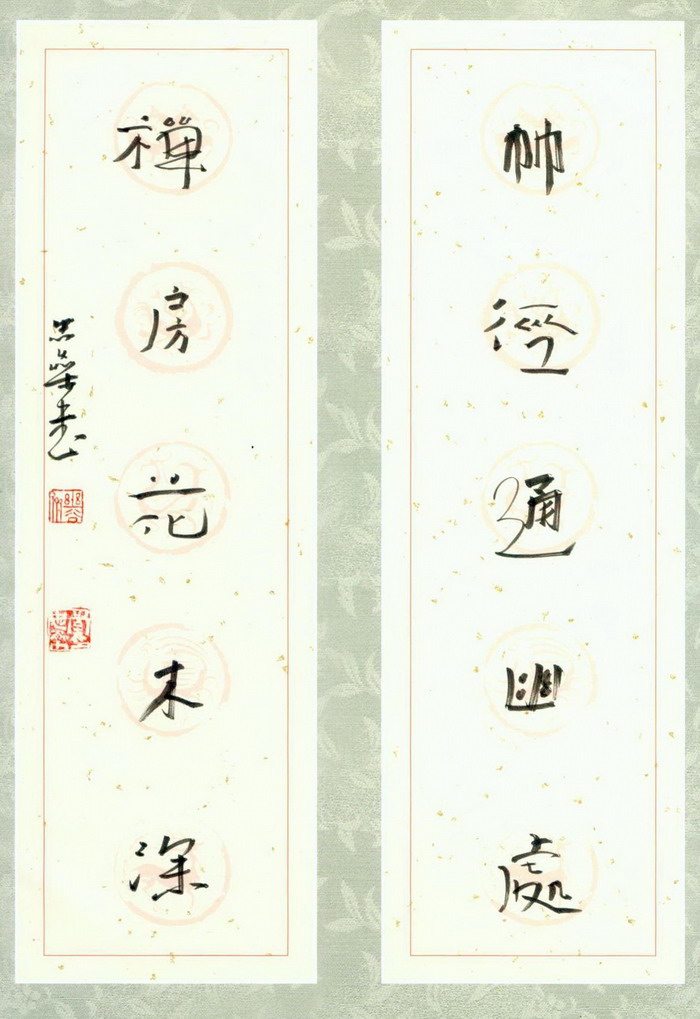 竹徑通幽處
禪房花木深